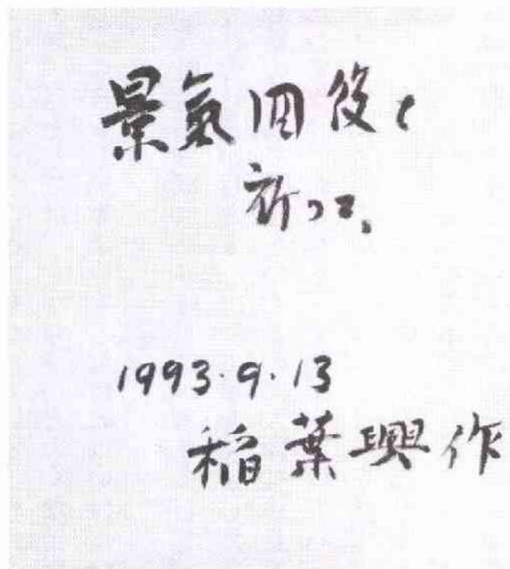 景氣回復を
祈って。
1993.9.13
稲葉興作